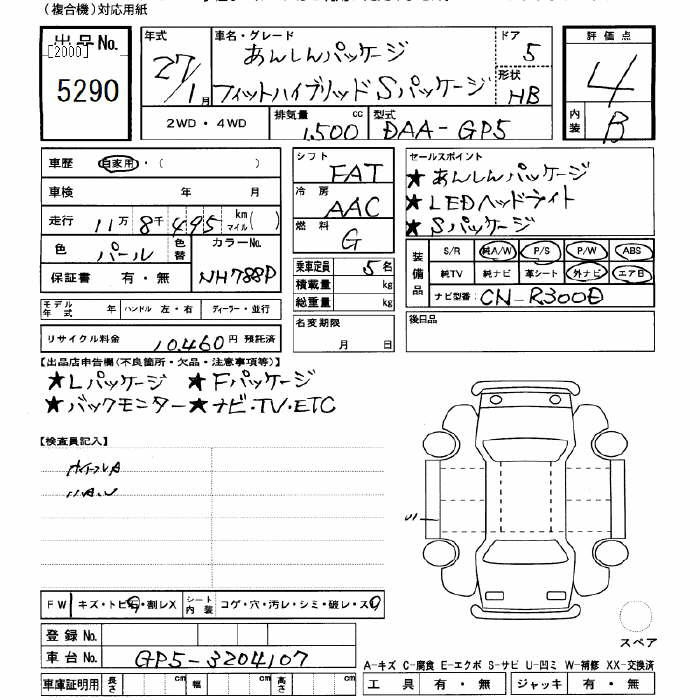 (複合機)対応用紙
出品No.
[2000]
5290
年式
27/1月
車名・グレード
あんしんパッケージ
フィットハイブリッド Sパッケージ
ドア
5
形状
HB
評価点
4
内装
B
2WD・4WD
排気量
1,500 cc
型式
DAA-GP5
車歴 自家用・( )
車検 年 月
走行 11万 8千 495 km マイル( )
色 パール 色替 カラーNo.
保証書 有・無 NH788P
モデル年式 年 ハンドル 左・右 ディーラー・並行
リサイクル料金 10,460円 預託済
シフト
FAT
冷房
AAC
燃料
G
乗車定員 5名
積載量 kg
総重量 kg
名変期限
月 日
セールスポイント
★あんしんパッケージ
★LEDヘッドライト
★Sパッケージ
装備品
S/R 純A/W P/S P/W ABS
純TV 純ナビ 革シート 外ナビ エアB
ナビ型番: CN-R300D
後日品
【出品店申告欄(不良箇所・欠品・注意事項等)】
★Lパッケージ ★Fパッケージ
★バックモニター★ナビ・TV・ETC
【検査員記入】
FW キズ・トビ石・割レX シート内装 コゲ・穴・汚レ・シミ・破レ・スレ
登録No.
車台No. GP5-3204107
車庫証明用 長さ cm 幅 cm 高さ cm
U1
スペア
A-キズ C-腐食 E-エクボ S-サビ U-凹ミ W-補修 XX-交換済
工具 有・無 ジャッキ 有・無